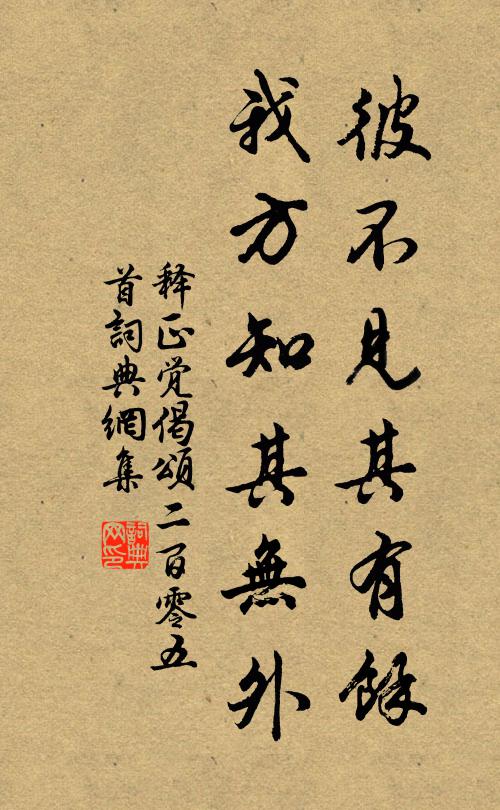 彼不見其有餘
我方知其無外
释正觉偈頌二百零五
首詞典網集
詞典
网印